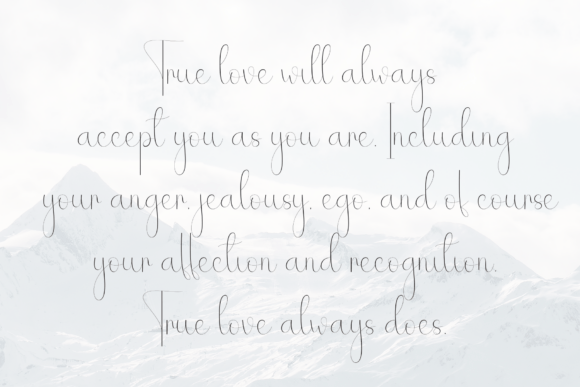 True love will always
accept you as you are. Including
your anger, jealousy, ego, and of course
your affection and recognition.
True love always does.